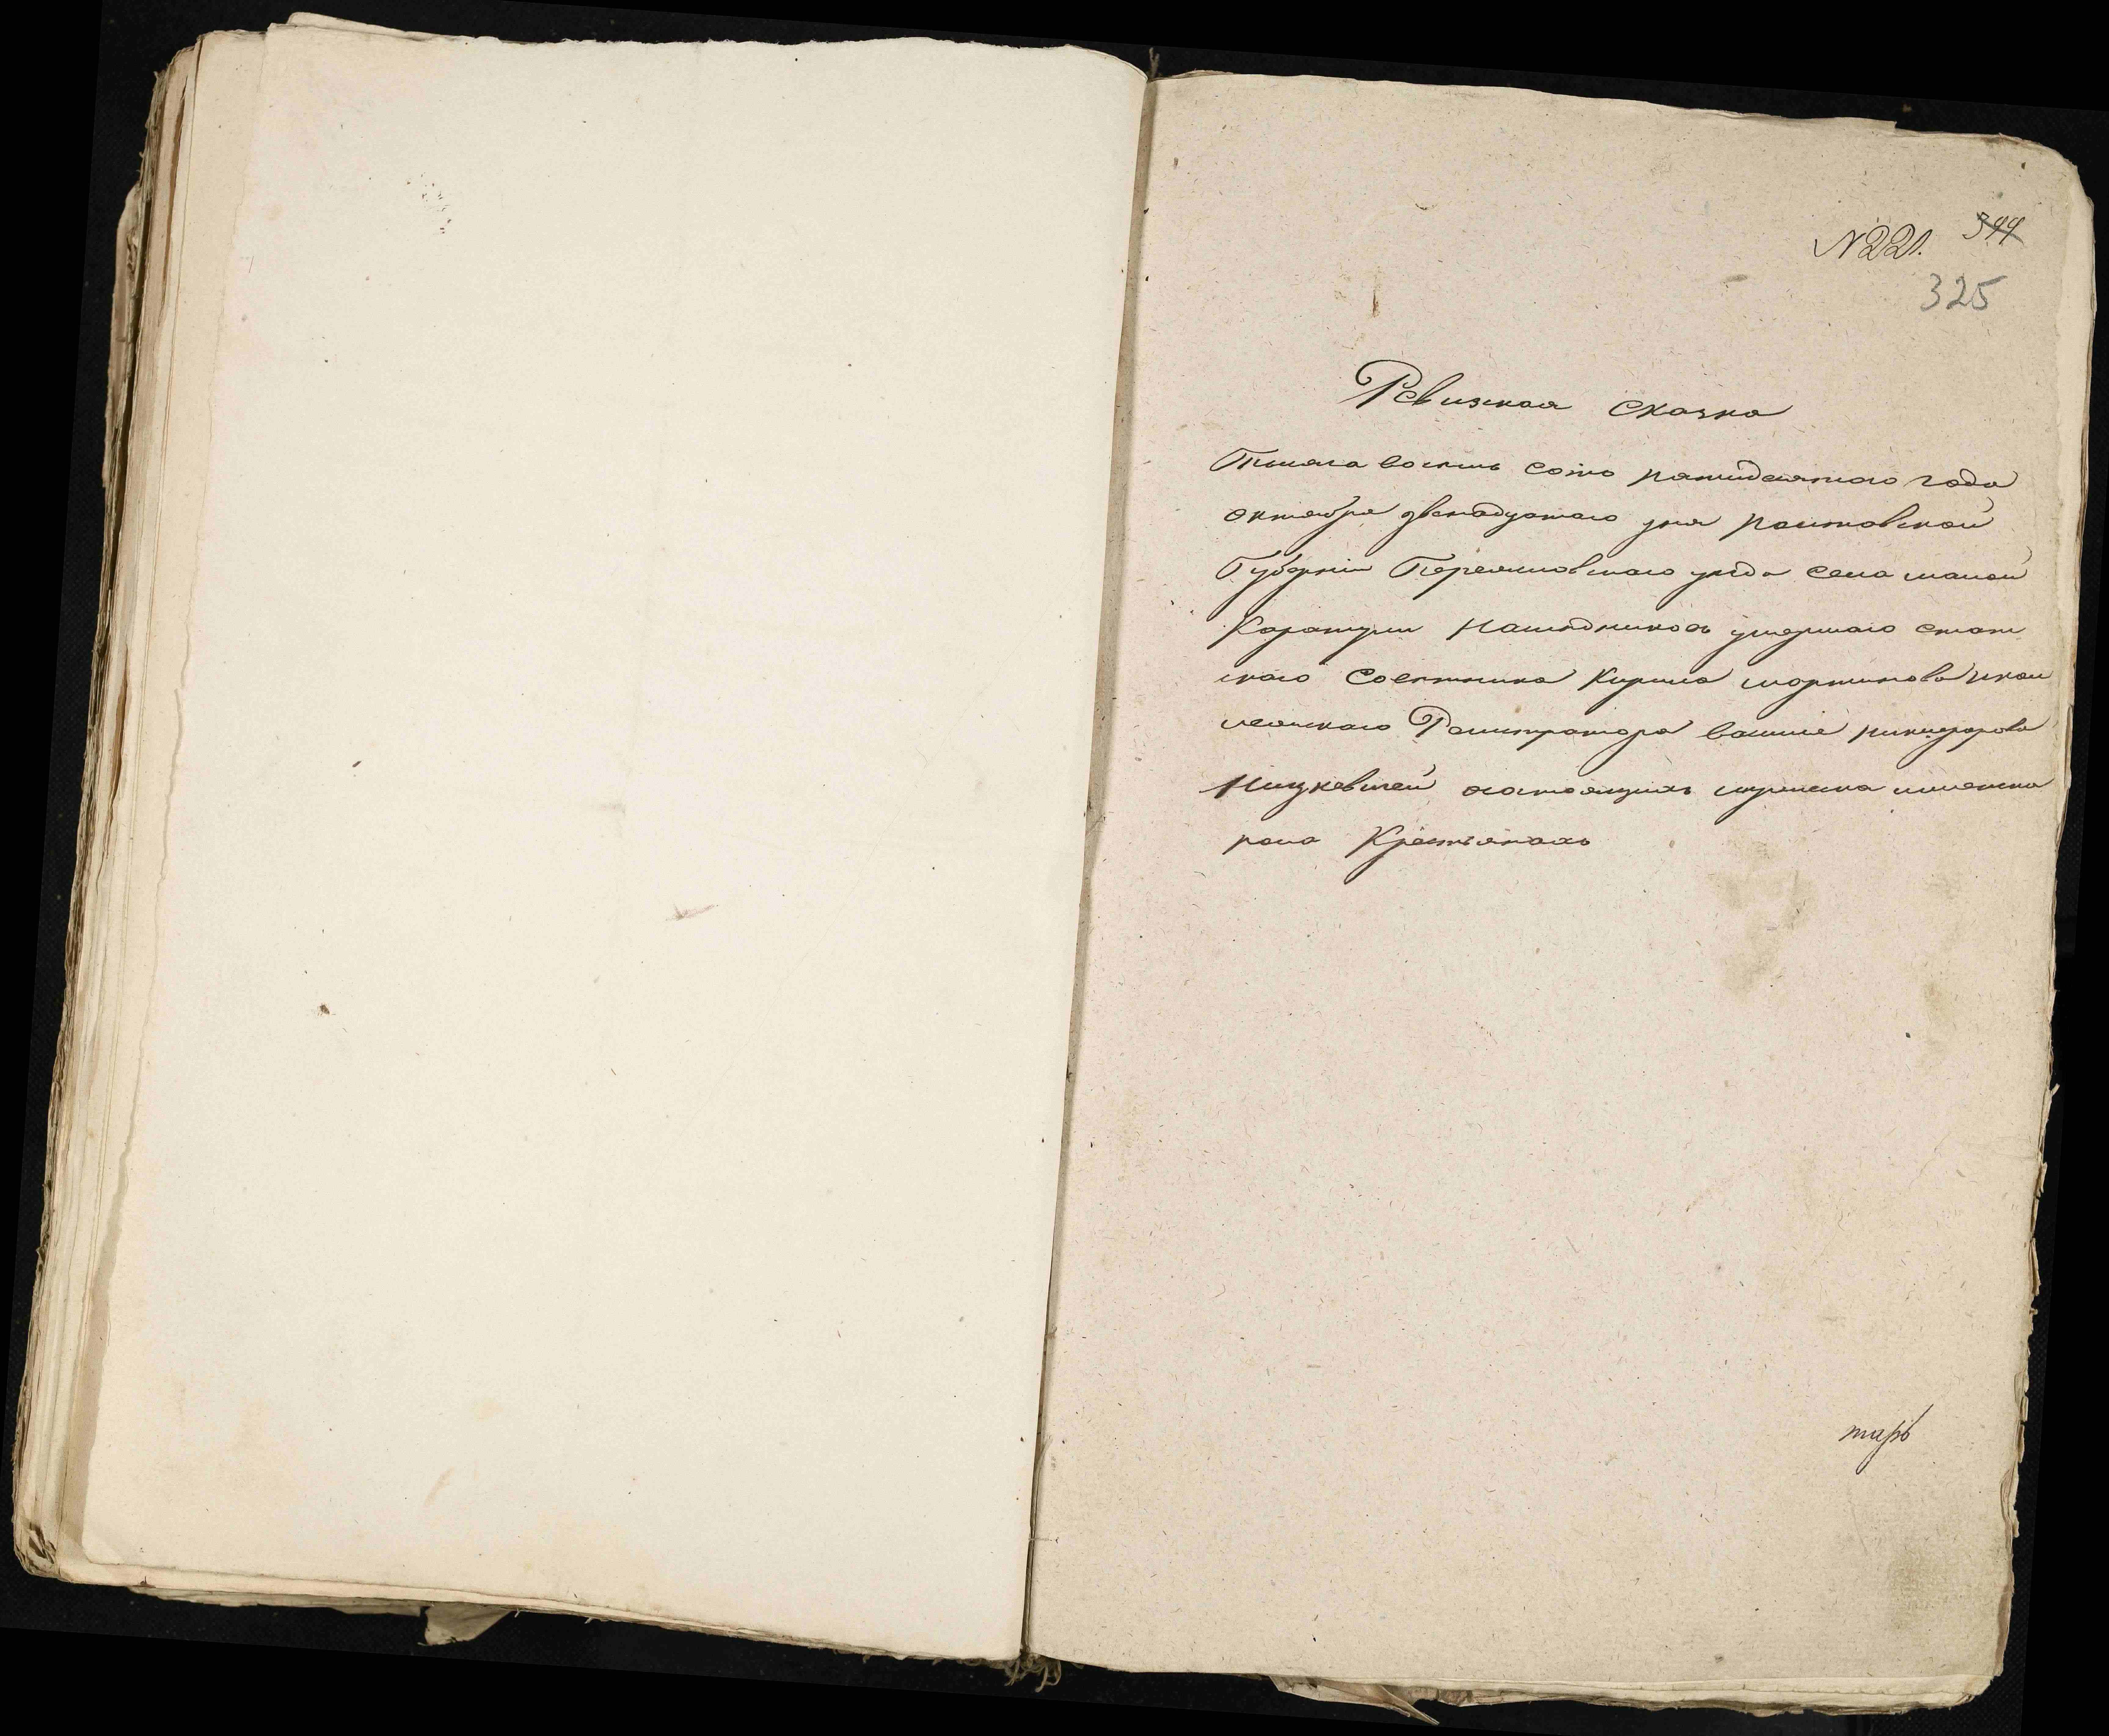 N 221. 344
325
Ревизкая сказка
Тысяча восемь сотъ пятидесятого года
октября двенадцатого дня Полтавской
Губернии Переяславского уезда села малой
Каратули Наследниковъ умершаго стат
ского Советника Кирила мартинова и кол
лежского Регистратора василия никифорова
Ницкевичей осостоящихъ мужеска и женска
пола Крестьянахъ
тарь